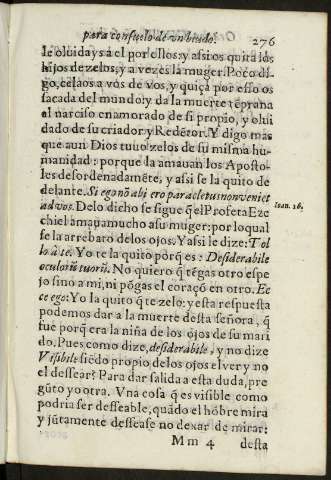 para consuelo de vn biudo.
276
le oluidays a el por ellos: y assi os quita los
hijos de zelos, y a vezes la muger. Poco di-
go, celaos a vos de vos, y quiça por esso os
sacada del mundo: y da la muerte tẽprana
al narciso enamorado de si propio, y olui
dado de su criador y Redẽtor. Y digo mas
que aun Dios tuuo zelos de su misma hu-
manidad: porque la amauan los Aposto-
les desordenadamẽte, y assi se la quito de
delante. Si ego nõ abi ero paracletus non veniet
ad vos. De lo dicho se sigue q̃ el Profeta Eze
Ioan. 16.
chiel amaua mucho a su muger: por loqual
se la arrebato de los ojos. Y assi le dize: Tol
lo à te. Yo te la quito porq̃ es: Desiderabile
oculorũ tuorũ. No quiero q̃ tẽgas otro espe
jo sino a mi, ni põgas el coraçõ en otro. Ec
ce ego: Yo la quito q̃ te zelo: y esta respuesta
podemos dar a la muerte desta señora, q̃
fue porq̃ era la niña de los ojos de su mari
do. Pues como dize, desiderabile, y no dize
Visibile siẽdo propio de los ojos el ver y no
el dessear? Para dar salida a esta duda, pre
gũto yo otra. Vna cosa q̃ es visible como
podria ser desseable, quãdo el hõbre mira
y jũtamente dessease no dexar de mirar:
Mm 4
desta